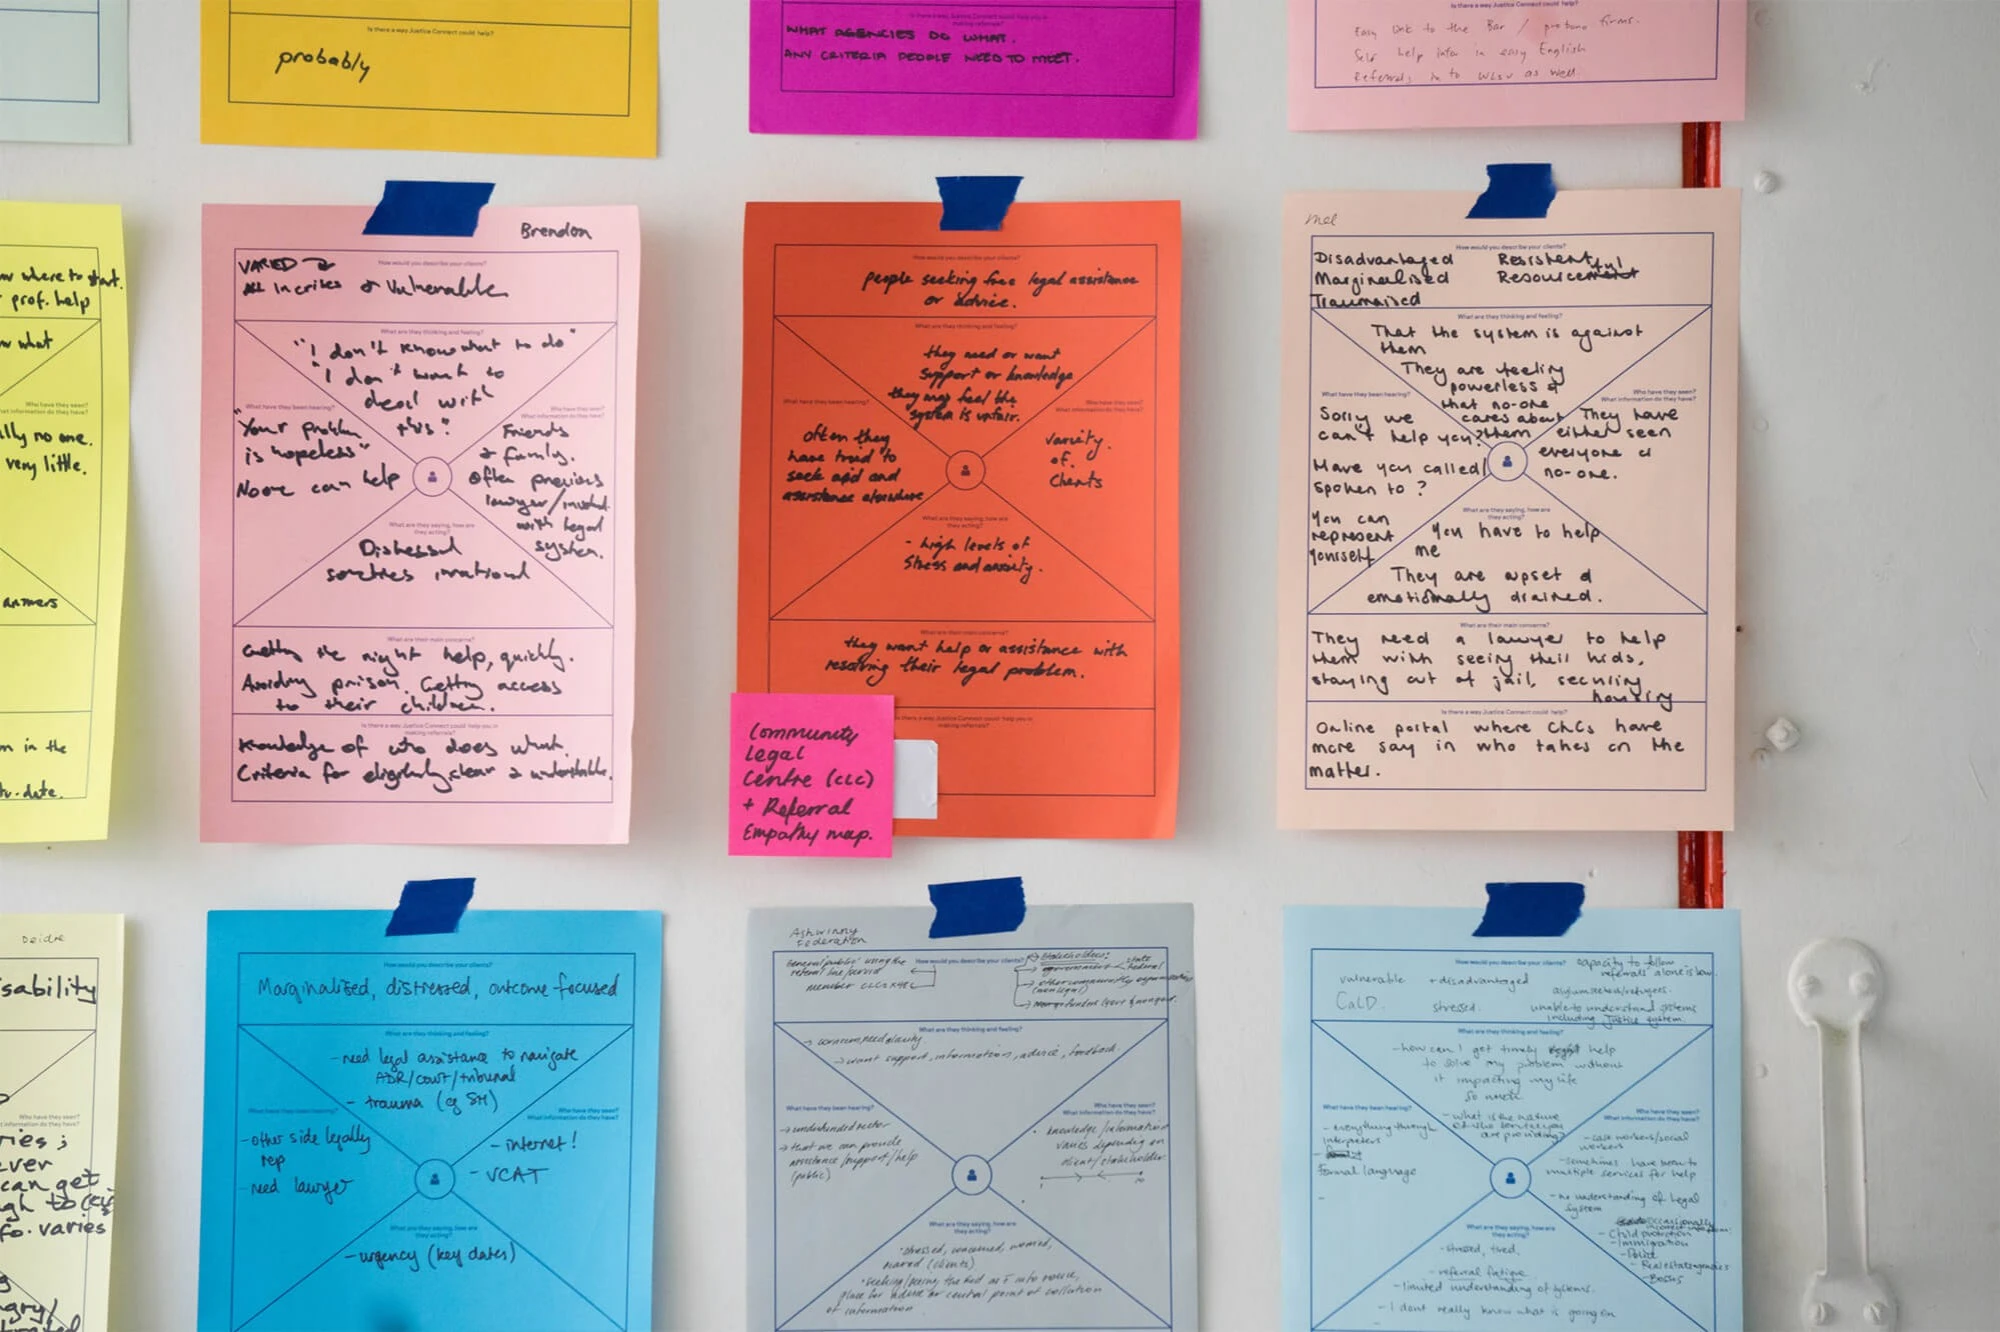 Is there a way Justice Connect could help?
probably
Is there a way Justice Connect could help you in
making referrals?
WHAT AGENCIES DO WHAT.
ANY CRITERIA PEOPLE NEED TO MEET.
Is there a way Justice Connect could help?
Easy link to the Bar / probono firms.
Self help info in easy English
Referrals in to WLSV as well.
where to start.
prof. help
what
Who have they seen?
What information do they have?
no one.
very little.
answers
in the
date.
Brendon
How would you describe your clients?
VARIED
All in crises & vulnerable
What are they thinking and feeling?
"I don't know what to do"
"I don't want to
deal with
this"
What have they been hearing?
"Your problem
is hopeless"
No one can help
Who have they seen?
What information do they have?
Friends
& family.
Often previous
lawyer/
with legal
system.
What are they saying, how are
they acting?
Distressed
sometimes irrational
What are their main concerns?
Getting the right help, quickly.
Avoiding prison. Getting access
to their children.
Is there a way Justice Connect could help you in
making referrals?
Knowledge of who does what.
Criteria for eligibility clear &
How would you describe your clients?
people seeking free legal assistance
or advice.
What are they thinking and feeling?
they need or want
support or knowledge
they may feel the
system is unfair.
What have they been hearing?
often they
have tried to
seek aid and
assistance elsewhere
Who have they seen?
What information do they have?
variety
of
clients
What are they saying, how are
they acting?
- high levels of
stress and anxiety.
What are their main concerns?
they want help or assistance with
resolving their legal problem.
Is there a way Justice Connect could help you in
making referrals?
Community
Legal
Centre (CLC)
+ Referral
Empathy map.
Mel
How would you describe your clients?
Disadvantaged Resistent
Marginalised Resourceful
Traumatised
What are they thinking and feeling?
That the system is against
them
They are feeling
powerless &
that no-one
cares about
them
What have they been hearing?
Sorry we
can't help you?
Have you called/
spoken to?
You can
represent
yourself
Who have they seen?
What information do they have?
They have
either seen
everyone or
no-one.
What are they saying, how are
they acting?
You have to help
me
They are upset &
emotionally drained.
What are their main concerns?
They need a lawyer to help
them with seeing their kids,
staying out of jail, securing
housing
Is there a way Justice Connect could help?
Online portal where CLCs have
more say in who takes on the
matter.
Deidre
Who have they seen?
What information do they have?
can get
varies
How would you describe your clients?
Marginalised, distressed, outcome focused
What are they thinking and feeling?
- need legal assistance to navigate
ADR/court/tribunal
- trauma (eg SH)
What have they been hearing?
- other side legally
rep
- need lawyer
Who have they seen?
What information do they have?
- internet!
- VCAT
What are they saying, how are
they acting?
- urgency (key dates)
Federation
How would you describe your clients?
General public using the
referral line/service
member CLCs
Stakeholders:
government
State
Federal
What are they thinking and feeling?
→ want support, information, advice, feedback
What have they been hearing?
→ underfunded sector
→ that we can provide
assistance/support/help
(public)
Who have they seen?
What information do they have?
knowledge/information
varies depending on
client/stakeholder
What are they saying, how are
they acting?
• stressed, concerned, worried,
scared (clients)
place for advice or central point of collation
of information
How would you describe your clients?
capacity to follow
referrals alone is low.
vulnerable + disadvantaged
asylum seekers/refugees.
CaLD. stressed.
unable to understand systems
including Justice system.
What are they thinking and feeling?
- how can I get timely help
to solve my problem without
it impacting my life
so much.
- what is the nature
of the service you
are providing?
What have they been hearing?
- everything through
interpreters
Formal language
Who have they seen?
What information do they have?
- case workers/social
workers
- sometimes have been to
multiple services for help
- no understanding of legal
system
occasionally
- Child protection
- Immigration
- Police
- Real estate agencies
- Banks
What are they saying, how are
they acting?
- stressed, tired.
- referral fatigue
- limited understanding of systems.
- I dont really know what is going on